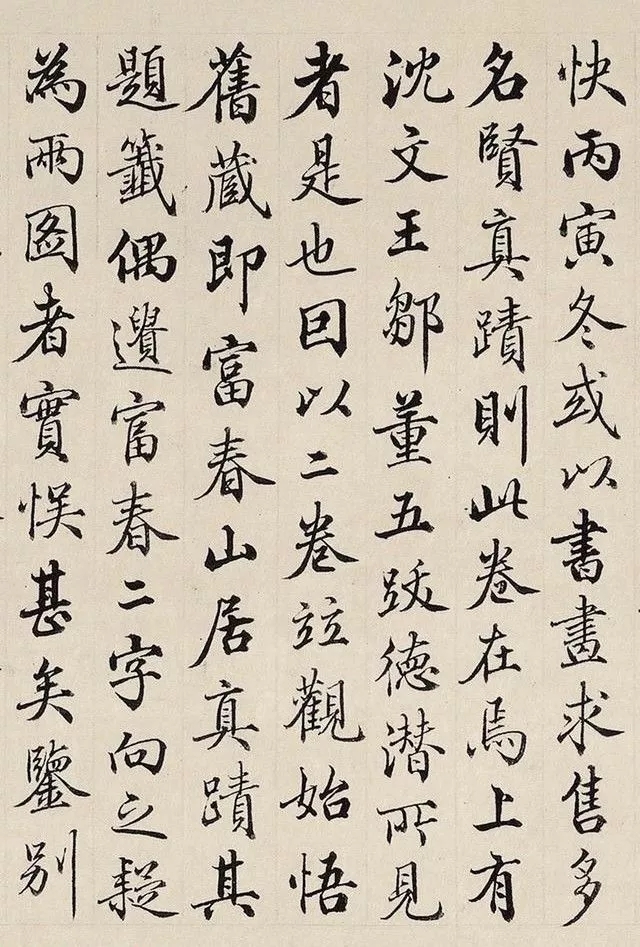 快丙寅冬或以書畫求售多
名賢真蹟則此卷在焉上有
沈文王鄒董五跋德潛所見
者是也因以二卷竝觀始悟
舊蔵即富春山居真蹟其
題籤偶遺富春二字向之疑
為兩圖者實悮甚矣鑒别